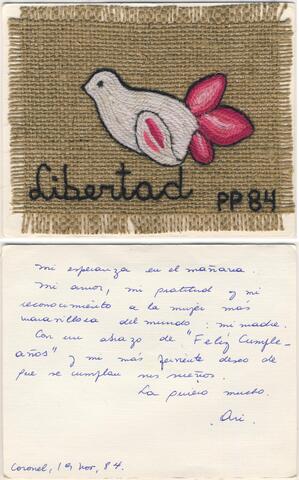 Libertad PP 84
Mi esperanza en el mañana.
Mi amor, mi gratitud y mi
reconocimiento a la mujer más
maravillosa del mundo: mi madre.
Con un abrazo de "Feliz Cumple-
años" y mi más ferviente deseo de
que se cumplan sus sueños.
La quiero mucho.
Ari.
Coronel, 19 nov, 84.